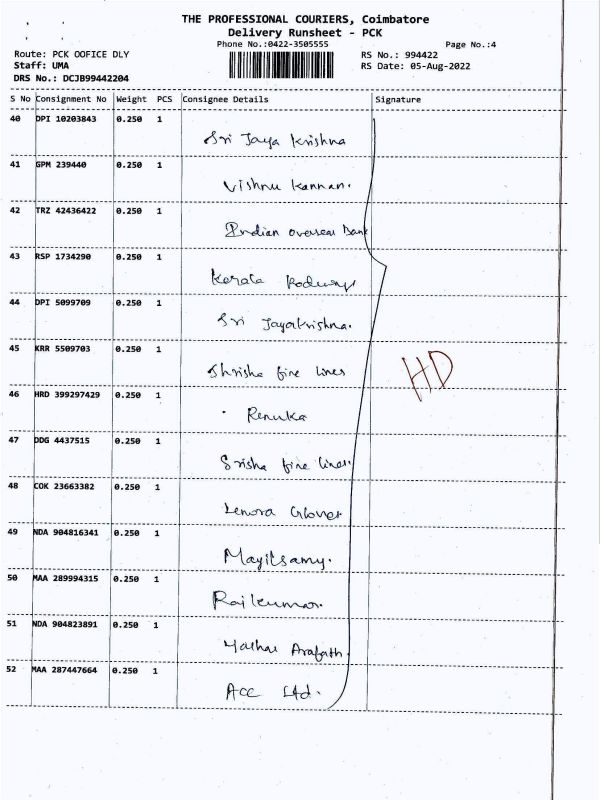 THE PROFESSIONAL COURIERS, Coimbatore
Delivery Runsheet - PCK
Phone No.:0422-3505555
Page No.:4
Route: PCK OOFICE DLY
RS No.: 994422
Staff: UMA
RS Date: 05-Aug-2022
DRS No.: DCJB99442204
S No Consignment No Weight PCS Consignee Details Signature
40 DPI 10203843 0.250 1
Sri Jaya Krishna
41 GPM 239440 0.250 1
Vishnu Kannan.
42 TRZ 42436422 0.250 1
Indian overseas Bank
43 RSP 1734290 0.250 1
Kerala
44 DPI 5099709 0.250 1
Sri Jayakrishna.
45 KRR 5509703 0.250 1
Shrisha fine lines
HD
46 HRD 399297429 0.250 1
Renuka
47 DDG 4437515 0.250 1
Srisha fine lines.
48 COK 23663382 0.250 1
Lenora Glover
49 NDA 904816341 0.250 1
Mayilsamy.
50 MAA 289994315 0.250 1
Rajkumar.
51 NDA 904823891 0.250 1
Arafath.
52 MAA 287447664 0.250 1
ACC Ltd.